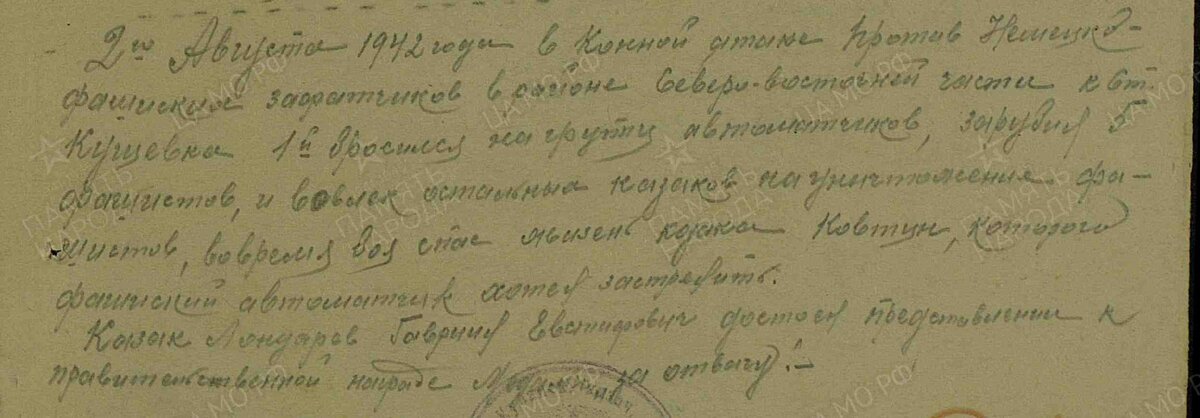 2го Августа 1942 года в Конной атаке против Немецко-
фашиских захватчиков в районе Северо-восточней части к ст.
Кущевка 1й бросился на групу автоматчиков, зарубил 5
фашистов, и вовлек остальных казаков на уничтожение фа-
шистов, во время боя спас жизень казака Ковтун, которого
фашиский автоматчик хотел застрелить.
Казак Лондарев Гавриил Евстафович достоен представлении к
правительственной награде Медалью за отвагу!-